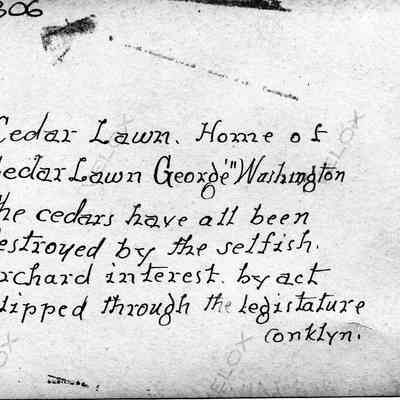 306
Cedar Lawn. Home of
Cedar Lawn George "Washington
the cedars have all been
destroyed by the selfish.
orchard interest. by act
slipped through the legistature
Conklyn.
VELOX